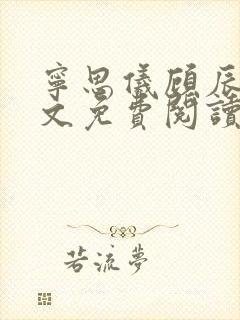 寧思儀顧辰
文免費閱讀
若流夢